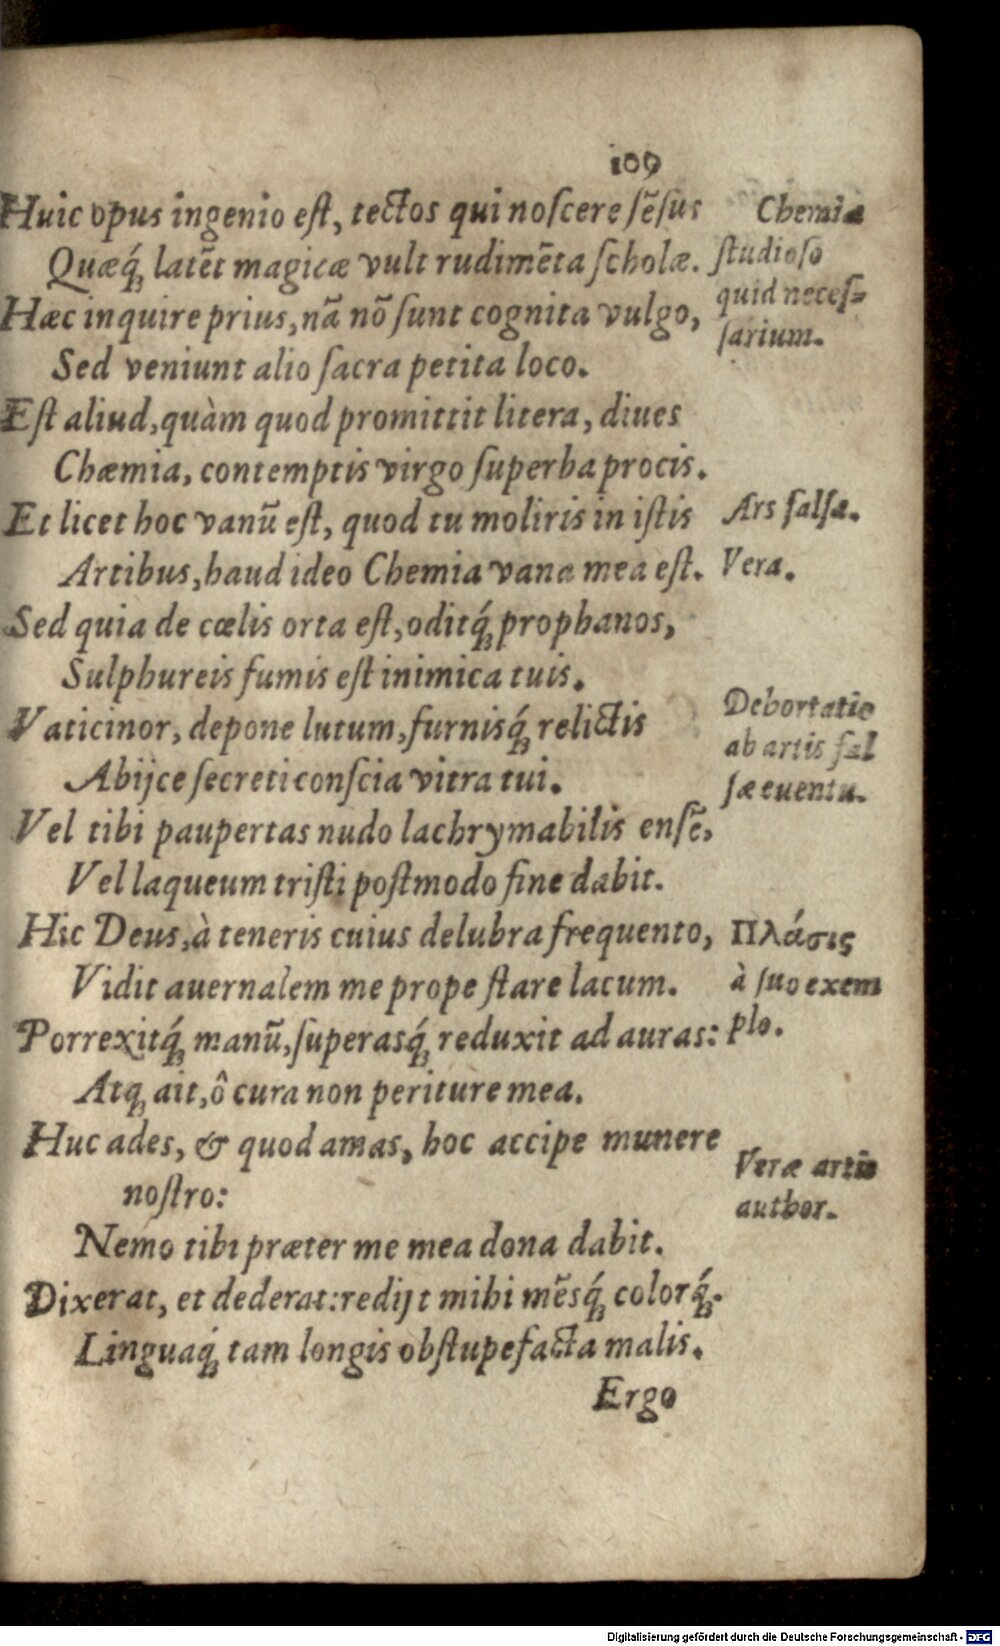 109
Huic opus ingenio eſt, tectos qui noſcere ſẽſus
Quæq́; latẽt magicæ vult rudimẽta ſcholæ.
Hæc inquire prius, nã nõ ſunt cognita vulgo,
Sed veniunt alio ſacra petita loco.
Eſt aliud, quàm quod promittit litera, diues
Chæmia, contemptis virgo ſuperba procis.
Et licet hoc vanũ eſt, quod tu moliris in iſtis
Artibus, haud ideo Chemia vana mea eſt.
Sed quia de cœlis orta eſt, oditq́; prophanos,
Sulphureis fumis eſt inimica tuis.
Vaticinor, depone lutum, furnisq́; relictis
Abijce ſecreti conſcia vitra tui.
Vel tibi paupertas nudo lachrymabilis enſẽ,
Vel laqueum triſti poſtmodo fine dabit.
Hic Deus, à teneris cuius delubra frequento,
Vidit auernalem me prope ſtare lacum.
Porrexitq́; manũ, ſuperasq́; reduxit ad auras:
Atq; ait, ô cura non periture mea.
Huc ades, & quod amas, hoc accipe munere
noſtro:
Nemo tibi præter me mea dona dabit.
Dixerat, et dederat: redijt mihi mẽsq́; colorq́;.
Linguaq́; tam longis obſtupefacta malis.
Ergo
Chemiæ
ſtudioſo
quid neceſ=
ſarium.
Ars falſa.
Vera.
Dehortatio
ab artis fal
ſæ euentu.
Πλάσις
à ſuo exem
plo.
Veræ artis
author.
Digitalisierung gefördert durch die Deutsche Forschungsgemeinschaft - DFG